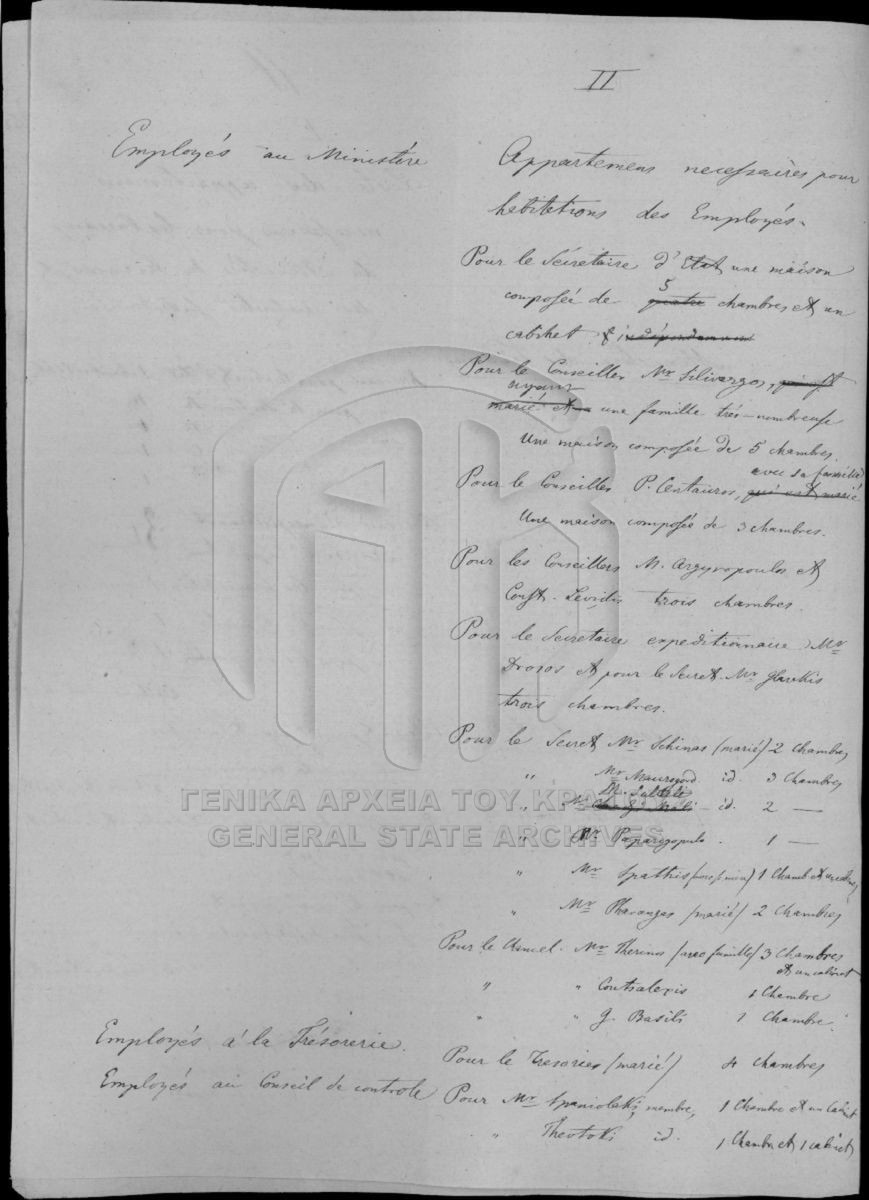 II
Employés au Ministère
Appartemens necessaires pour
habitations des Employés.
Pour le Sécretaire d'Etat une maison
composée de quatre 5 chambres et un
cabinet
Pour le Conseiller Mr Silivergos,
ayant
marié et une famille très-nombreuse
Une maison composée de 5 chambres.
avec sa famille
Pour le Conseiller P. Centauros, qui est marié
Une maison composée de 3 chambres.
Pour les Conseillers M. Argyropoulos et
Const. Levidis trois chambres.
Pour le Secretaire expeditionnaire Mr
Drosos et pour le Secret. Mr Glarakis
trois chambres.
Pour le Secret Mr Schinas (marié) 2 Chambres
" Mr Maurogord. id. 3 Chambres
" id. 2 —
" Mr Paparigopulo. 1 —
" Mr Spathis 1 Chamb et un cabinet
" Mr Pharangas (marié) 2 Chambres
Pour le Mr Therinos (avec famille) 3 Chambres
et un cabinet
" " Contralexis 1 Chambre
" " G. Basili 1 Chambre
Employés á la Trésorerie.
Pour le Tresorier (marié) 4 chambres
Employés au Conseil de controle
Pour Mr Spaniolaki, membre, 1 Chambre et un Cabinet
" Theotoki id. 1 Chambre et 1 cabinet
ΓΕΝΙΚΑ ΑΡΧΕΙΑ ΤΟΥ ΚΡΑΤΟΥΣ
GENERAL STATE ARCHIVES